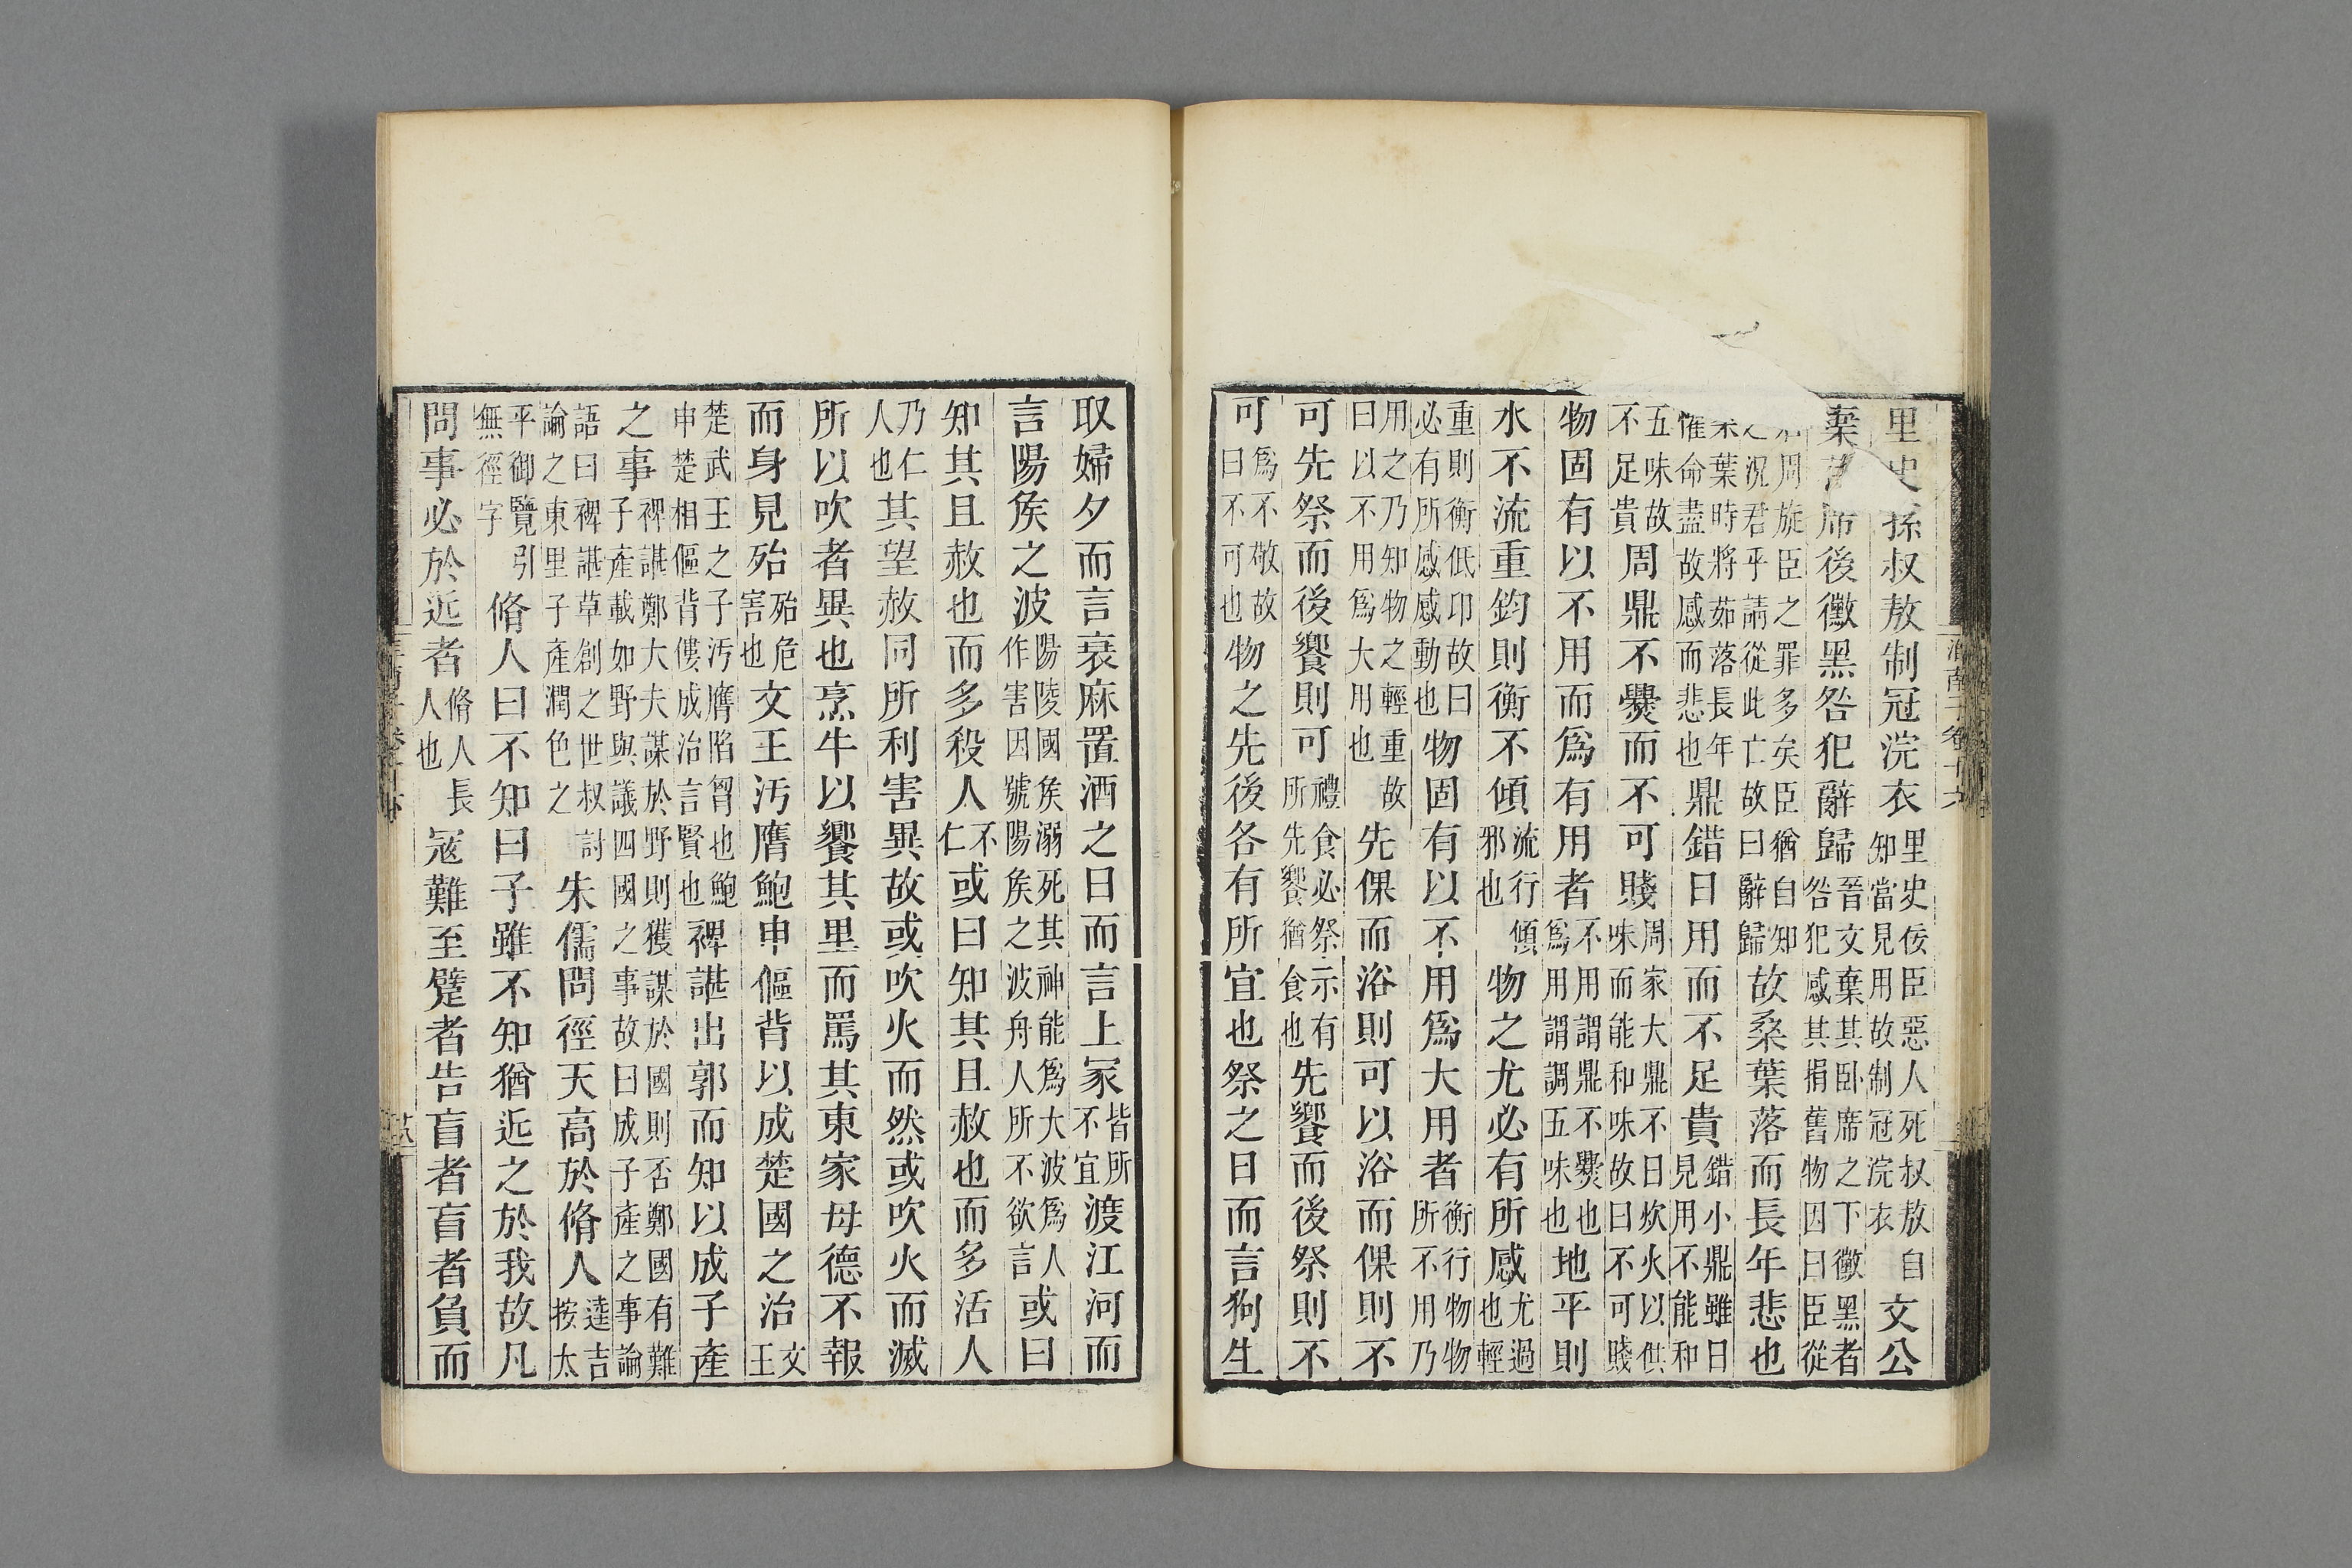 里史孫叔敖制冠浣衣里史佞臣惡人死叔敖自知當見用故制冠浣衣文公
棄席後黴黑咎犯辭歸晉文棄其臥席之下黴黑者咎犯感其捐舊物因曰臣從
周旋臣之罪多矣臣猶自知況君乎請從此亡故曰辭歸故桑葉落而長年悲也
葉時將茹落長年惟命盡故感而悲也鼎錯日用而不足貴錯小鼎雖日見用不能和
五味故不足貴周鼎不爨而不可賤周家大鼎不日炊火以供味而能和味故曰不可賤
物固有以不用而爲有用者不用謂鼎不爨也爲用謂調五味也地平則
水不流重鈞則衡不傾流行傾邪也物之尤必有所感尤過也輕
重則衡低卬故曰必有所感感動也物固有以不用爲大用者衡行物物所不用乃
用之乃知物之輕重故曰以不用爲大用也先倮而浴則可以浴而倮則不
可先祭而後饗則可禮食必祭示有所先饗猶食也先饗而後祭則不
可爲不敬故曰不可也物之先後各有所宜也祭之日而言狗生
取婦夕而言衰麻置酒之日而言上冢皆所不宜渡江河而
言陽矦之波陽陵國矦溺死其神能爲大波爲人作害因號陽矦之波舟人所不欲言或曰
知其且赦也而多殺人不仁或曰知其且赦也而多活人
乃仁人也其望赦同所利害異故或吹火而然或吹火而滅
所以吹者異也烹牛以饗其里而罵其東家母德不報
而身見殆殆危害也文王汚膺鮑申傴背以成楚國之治文王
楚武王之子汚膺陷胷也鮑申楚相傴背僂成治言賢也裨諶出郭而知以成子產
之事裨諶鄭大夫謀於野則獲謀於國則否鄭國有難子產載如野與議四國之事故曰成子產之事論
語曰裨諶草創之世叔討論之東里子產潤色之朱儒問徑天高於脩人逵吉按太
平御覽引無徑字脩人曰不知曰子雖不知猶近之於我故凡
問事必於近者脩人長人也寇難至躄者告盲者盲者負而